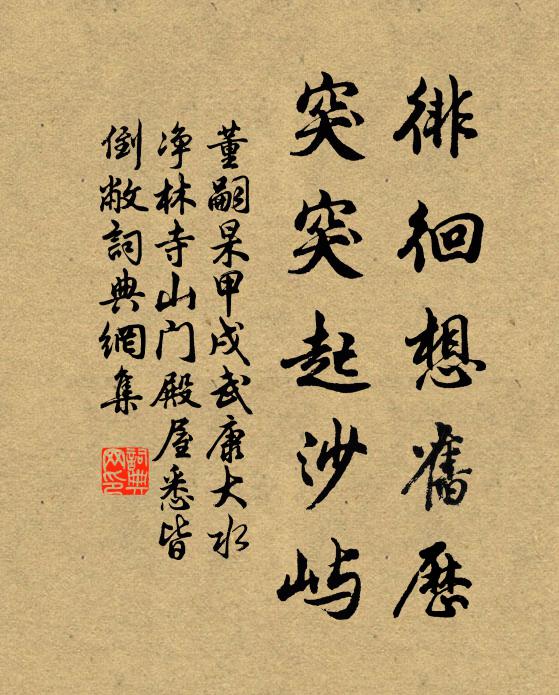 徘徊想舊歷
突突起沙屿
董嗣杲甲戌武康大水
净林寺山门殿屋悉皆
倒敝詞典網集
詞典网印